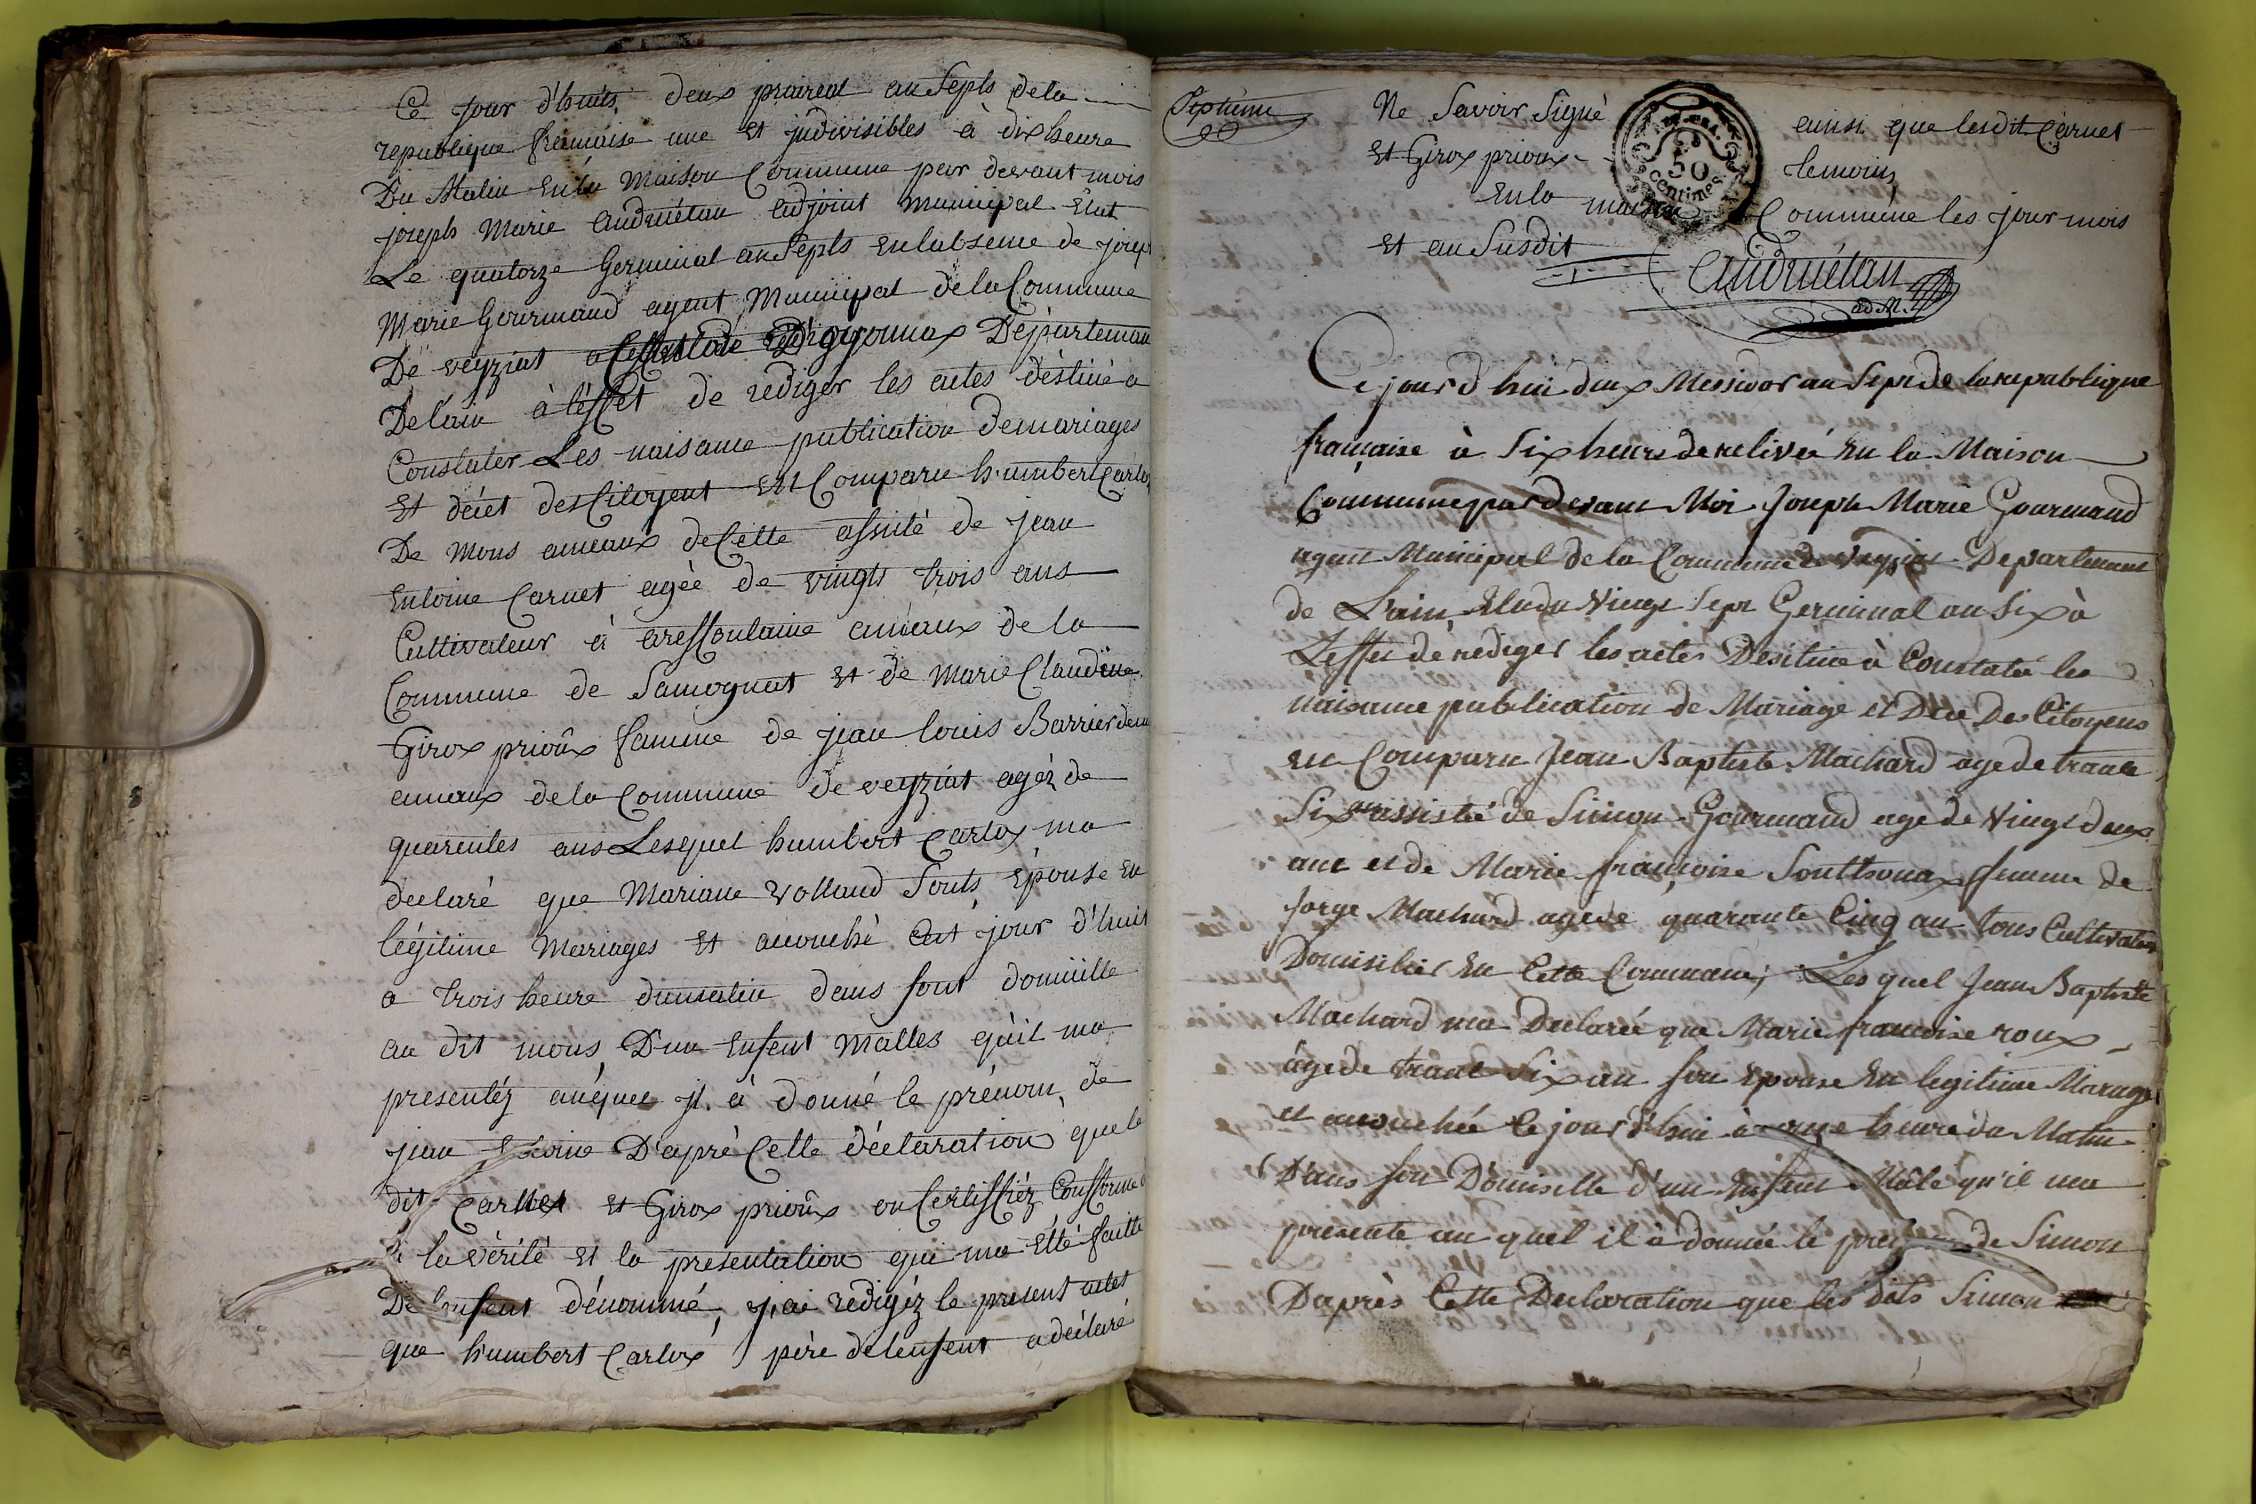 Ce jour d'huits deux praireal an Septs de la
republique francaise une Et judivisibles à dix heure
Du Matin En la Maison Commune par devant mois
joseph Marie andruétan adjoint municipal Elut
Le quatorze Germinal an Septs En labsence de joseph
Marie Gourmand agent Municipal de la Commune
De veyziat D'oyonnax Départeman
De lain à léffet de rediger les actes déstiné a
Constater Les naisance publication de mariages
Et décet des Citoyent Est Comparu humbert Carlox
De Mons ameaux de Cette assité de jean
Entoine Carnet agée de vingts trois ans
Cultivateur à aressoulaine ameaux de la
Commune de Samognat Et de Marie Claudine
Girox prioux famme de jean louis Barrier
ameaux de la Commune de veyziat agéz de
quarentes ans Lesquel humbert Carlox ma
declaré que Mariane Volland Sonts Épouse En
légitime Mariages Et acouché Cet jour d'huit
a trois heure dumatin dans sont domicille
au dit mons D'un Enfent Malles qu'il ma
presentéz auéquel jl à donné le prénom de
jean Entoine D'apré Cette déclaration que le
dit Carnet Et Girox prioux on Certiffiéz Confforme
à la vérité Et la presentation qui ma Etté faitte
De lenfent dénommé, j,ai rédigéz le présent actes
que humbert Carlox père de lenfent a déclaré
Septième
Ne Savoir Signé ainsi que lesdit Carnet
Et Girox prioux temoins
En la maison Commune les jour mois
Et an Susdit
50
centimes
andruétan
ad. M.
Ce jour d hui deux Messidor an Sept de la republique
française à Six heure de relivée En la Maison
Commune par devant Moi Joseph Marie Gourmand
agent Municipal de la Commune de Veyziat Departement
de L'ain, Elu du Vingt Sept Germinal an Six à
L'effet de rediger les actes Desitine à Constaté les
naisance publication de Mariage et Dece Des Citoyens
en Comparu Jean Baptiste Machard age de trante
Six assistée de Simon Gourmand age de Vingt deux
ant et de Marie françoise Soutthonax femme de
Jorge Machard agede quarante Cinq an tous Cultivateur
Domisilier En Cette Commune, Les quel Jean Baptiste
Machard ma Declarée que Marie francoise roux
âge de trante Six an son Epouse En legitime Mariage
et acouchée Ce jour d'hui à onze heure du Matin
Dans son Domisille d'un Enfent Mâle qu'il ma
présente au quel il à donnée le prenom de Simon
D'après Cette Declaration que les dits Simon